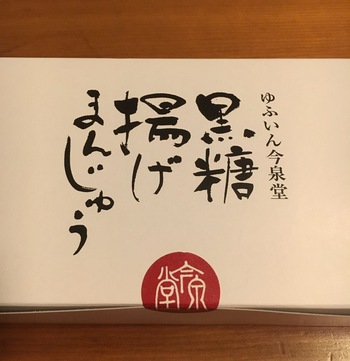 ゆふいん今泉堂
黒糖
揚げ
まんじゅう
今泉堂